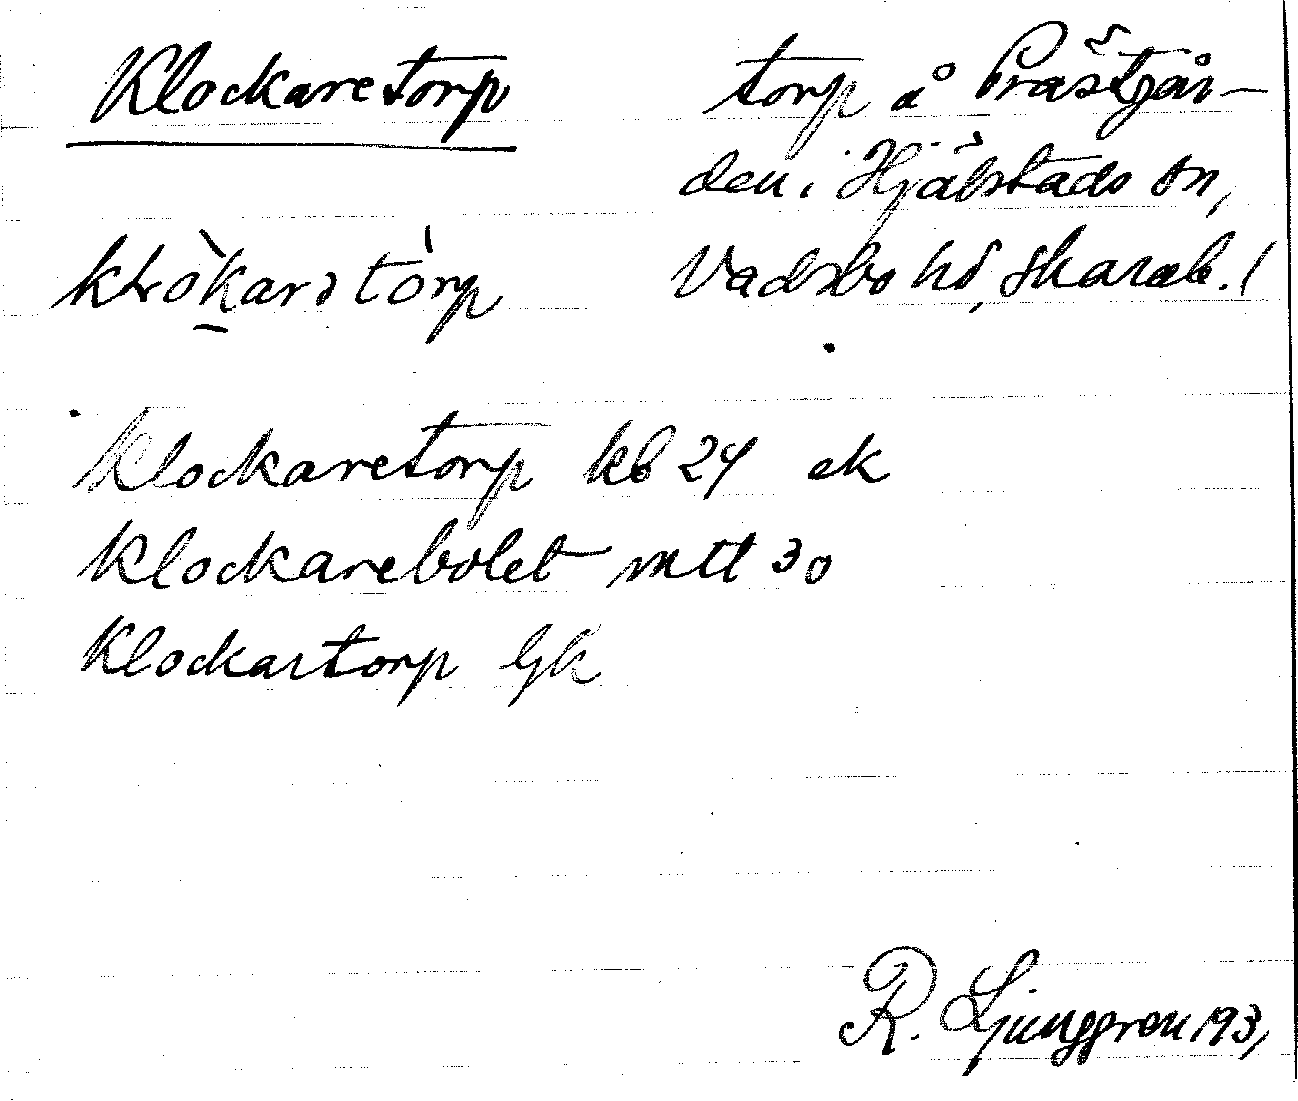 Klockaretorp
torp å Prästgår-
den i Hjälstads sn,
Vadsbo hd, Skarab. l
klòkarə tòrp
Klockaretorp kb 24 ek
Klockarebolet mtl 30
Klockartorp Gk
R. Ljunggren 1931